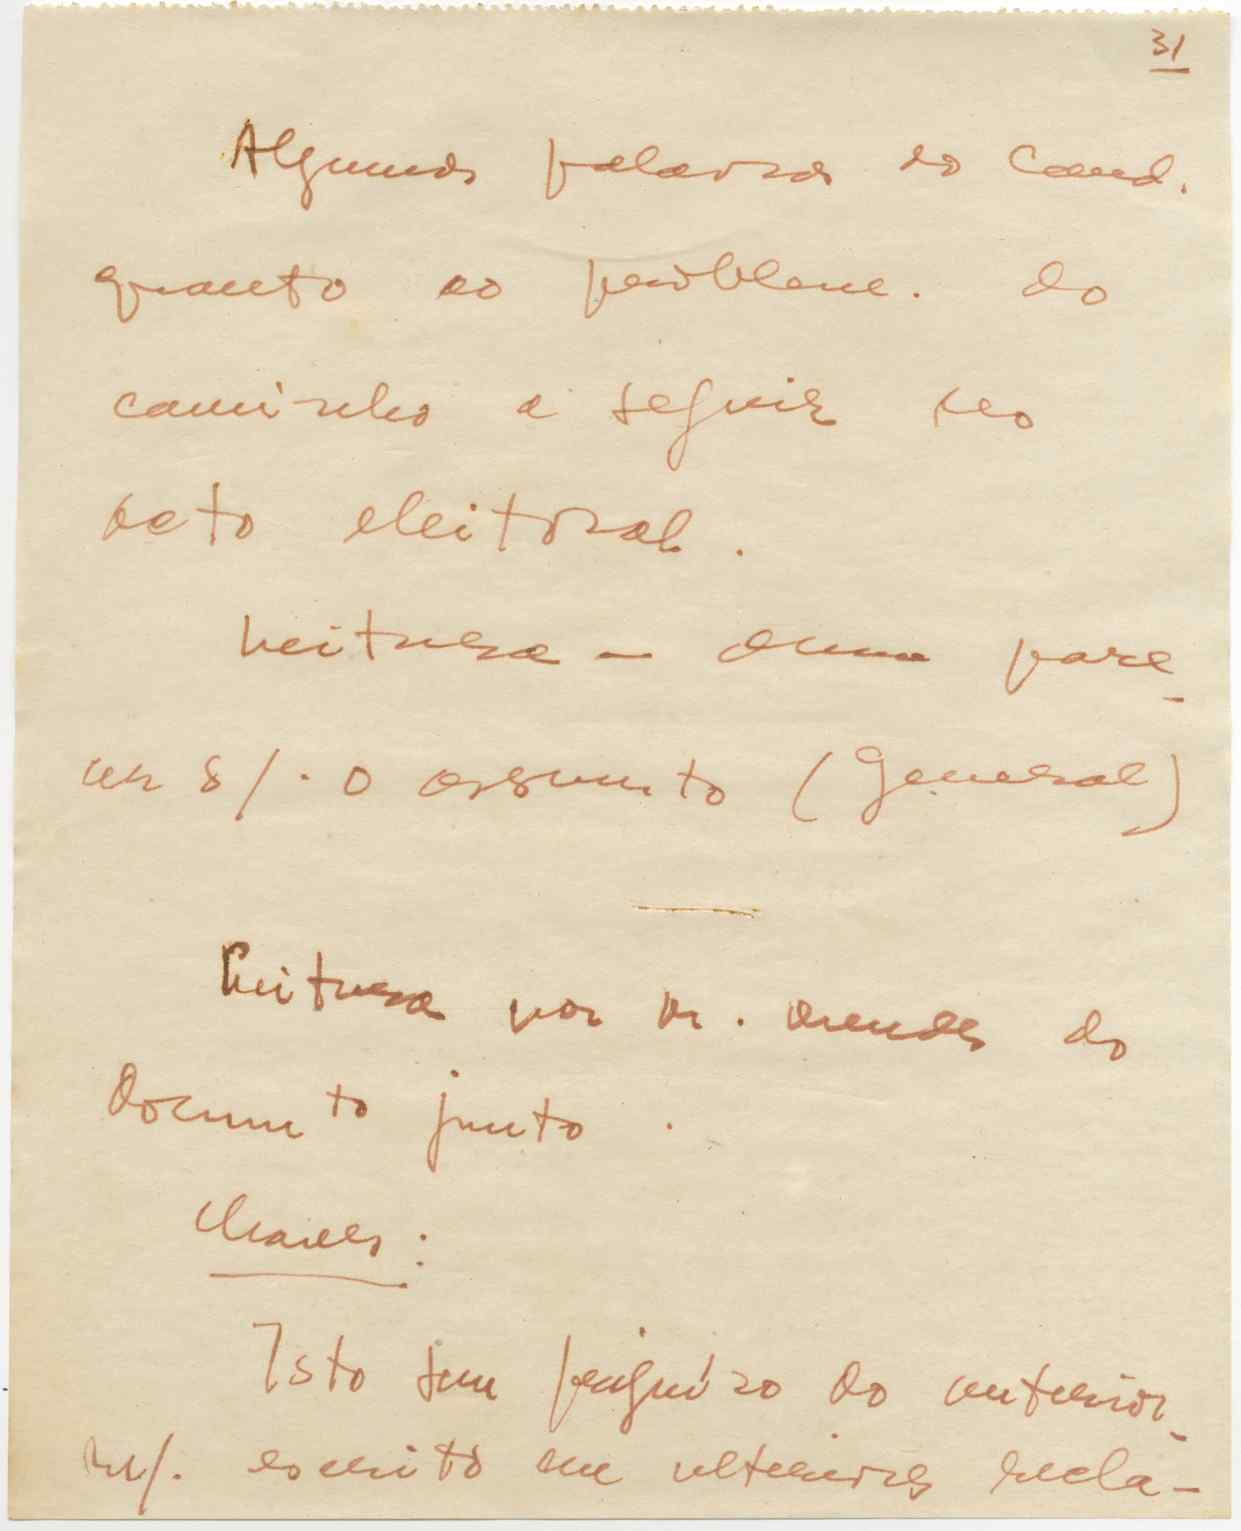 31
Algumas palavras do Cand.
quanto ao problema. do
caminho a seguir no
acto eleitoral.
Leitura — duma pare-
cer s/. o assunto (General)
Leitura por Dr. Arendes do
documto junto.
Chaves:
Isto sem prejuízo do anterior-
m/. escrito em ulteriores recla-